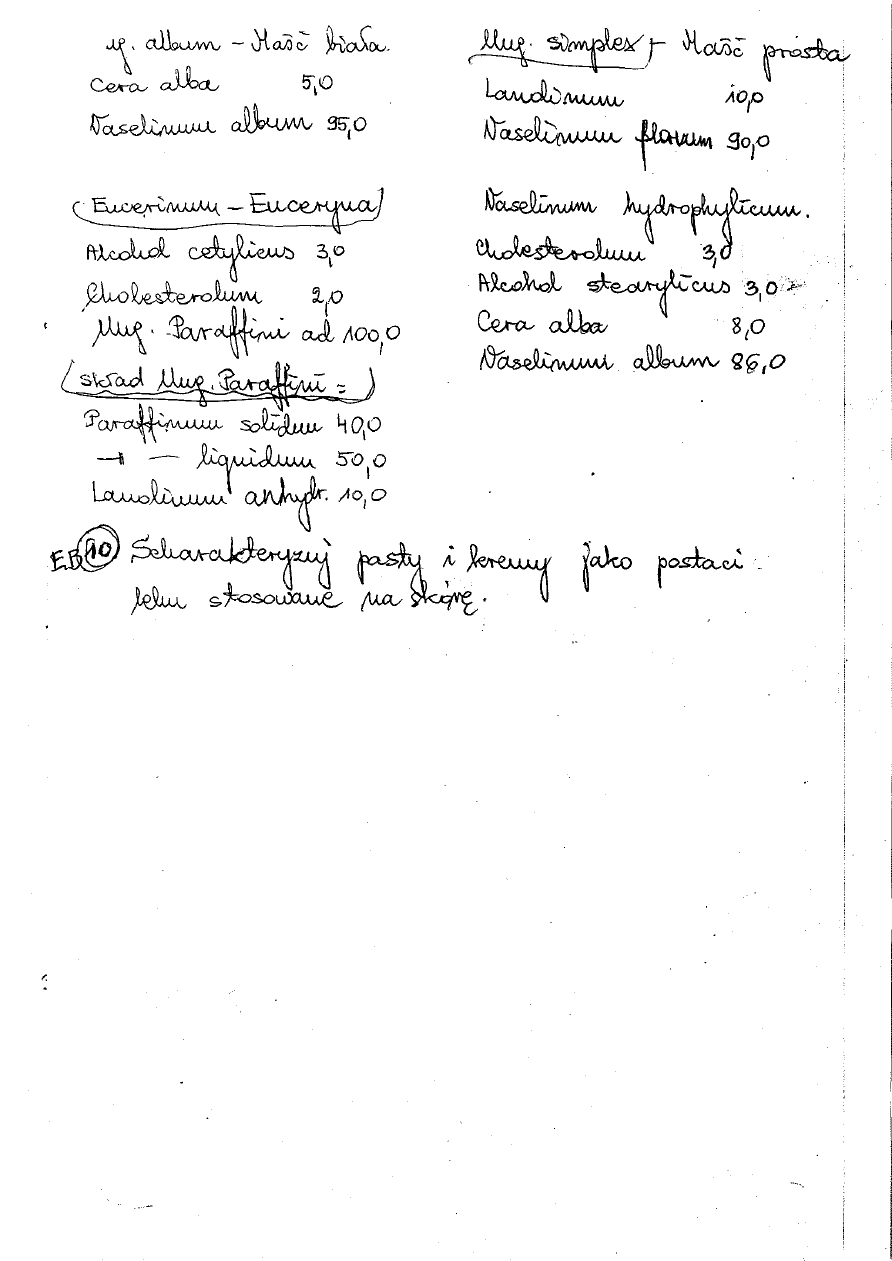 ug. album – Maść biała.
Cera alba 5,0
Vaselinum album 95,0
Ung. simplex – Maść prosta
Lanolinum 10,0
Vaselinum flavum 90,0
Eucerinum – Euceryna
Alcohol cetylicus 3,0
Cholesterolum 2,0
Ung. Paraffini ad 100,0
skład Ung. Paraffini =
Paraffinum solidum 40,0
–"– liquidum 50,0
Lanolinum anhydr. 10,0
Vaselinum hydrophylicum.
Cholesterolum 3,0
Alcohol stearylicus 3,0
Cera alba 8,0
Vaselinum album 86,0
EB 10 Scharakteryzuj pasty i kremy jako postaci
leku stosowane na skórę.